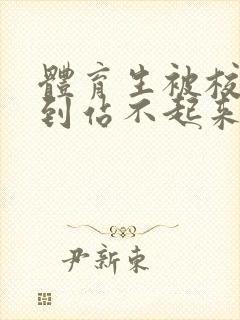 體育生被校
到佔不起來
尹新東